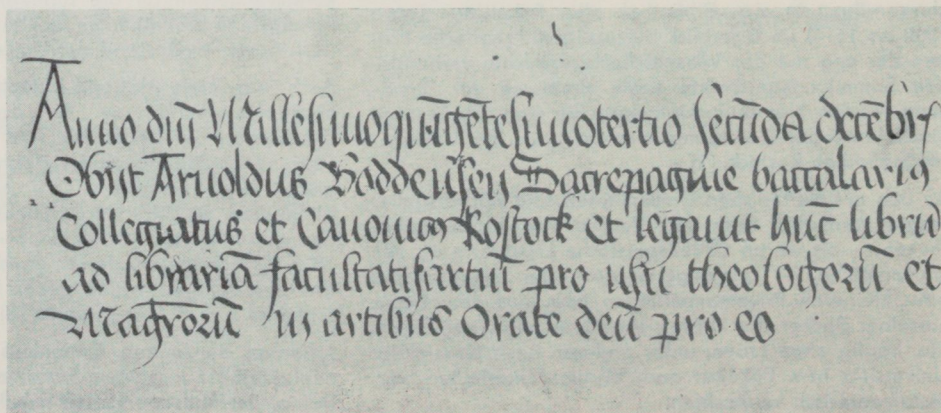 Anno dm̄ Millesimoquīgētesimotertio secūda decēbris
Obijt Arnoldus Boddensen Sacrepagine baccalarius
Collegiatus et Canonicus Rostock et legauit hūc librū
ad librariā facultatisartiū pro usu theologorū et
Magrorū in artibus Orate deū pro eo